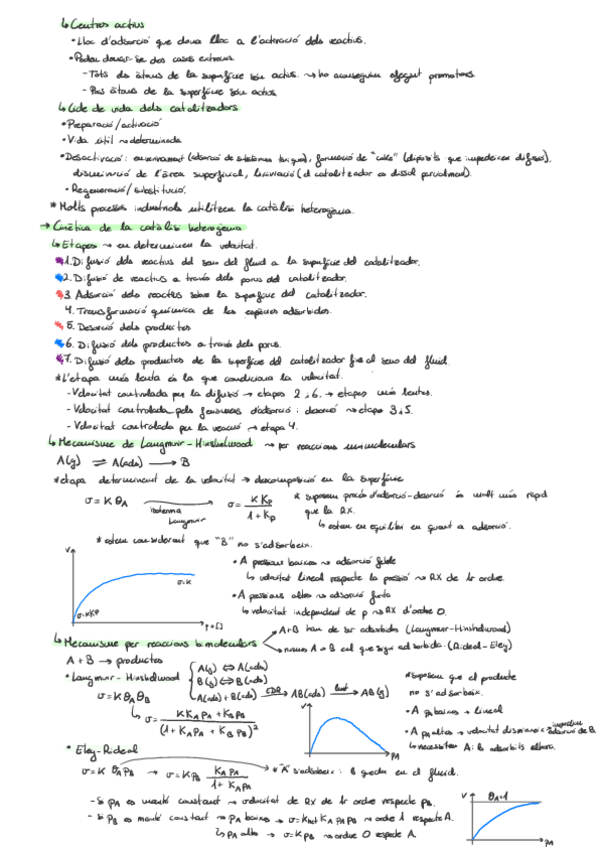 ↳ Centres actius
• Lloc d'adsorció que dona lloc a l'activació dels reactius.
• Poden donar-se dos casos extrems.
- Tots els àtoms de la superfície són actius. → no aconseguim afegint promotors.
- Pocs àtoms de la superfície són actius
↳ Cicle de vida dels catalitzadors
• Preparació/activació
• Vida útil → determinada
• Desactivació: enverinament (adsorció de substàncies), formació de "coke" (dipòsits que impedeixen difusió),
disminució de l'àrea superficial, lixiviació (el catalitzador es dissol parcialment).
• Regeneració/substitució.
* Molts processos industrials utilitzen la catàlisi heterogènia.
→ Cinètica de la catàlisi heterogènia
↳ Etapes → en determinen la velocitat.
1. Difusió dels reactius del sens del fluid a la superfície del catalitzador.
2. Difusió de reactius a través dels porus del catalitzador.
3. Adsorció dels reactius sobre la superfície del catalitzador.
4. Transformació química de les espècies adsorbides.
5. Desorció dels productes
6. Difusió dels productes a través dels porus.
7. Difusió dels productes de la superfície del catalitzador fins al sens del fluid.
* L'etapa més lenta és la que condiciona la velocitat.
- Velocitat controlada per la difusió → etapes 2 i 6. → etapes més lentes.
- Velocitat controlada pels fenòmens d'adsorció i desorció → etapa 3 i 5.
- Velocitat controlada per la reacció → etapa 4.
↳ Mecanisme de Langmuir-Hinshelwood → per reaccions unimoleculars
A(g) ⇌ A(ads) → B
* etapa determinant de la velocitat → descomposició en la superfície
v = K θA → isoterma Langmuir → v = K Kp / 1 + Kp
* suposem procés d'adsorció-desorció és molt més ràpid
que la RX.
↳ estem en equilibri en quant a adsorció.
* estem considerant que "B" no s'adsorbeix.
v
v=K
v=KKp
P
• A pressions baixes → adsorció feble
↳ velocitat lineal respecte la pressió → RX de 1r ordre.
• A pressions altes → adsorció forta
↳ velocitat independent de p → RX d'ordre 0.
↳ Mecanisme per reaccions bimoleculars
A+B han de ser adsorbides (Langmuir-Hinshelwood)
només A o B cal que sigui adsorbida. (Rideal-Eley)
A + B → productes
• Langmuir-Hinshelwood
A(g) ⇔ A(ads)
B(g) ⇔ B(ads)
A(ads) + B(ads) → AB(ads) → AB(g)
* suposem que el producte
no s'adsorbeix.
v = K θA θB
↳ v = K KA PA + KB PB / (1 + KA PA + KB PB)²
v
PA
• A PA baixes → lineal
• A PA altes → velocitat disminueix → adsorció de B.
↳ necessitem A i B adsorbits alhora.
• Eley-Rideal
v = K θA PB → v = K PB KA PA / 1 + KA PA
* "A" s'adsorbeix i B queda en el fluid.
- Si PA es manté constant → velocitat de RX de 1r ordre respecte PB.
- si PB es manté constant → PA baixes → v = K KA PA PB → ordre 1 respecte A.
↳ PA altes → v = K PB → ordre 0 respecte A.
v
θA=1
PA